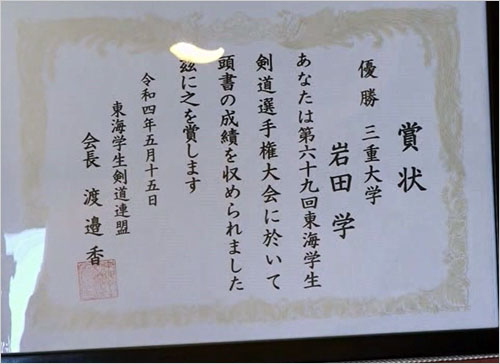 賞状
優勝 三重大学
岩田学
あなたは第六十九回東海学生
剣道選手権大会に於いて
頭書の成績を収められました
茲に之を賞します
令和四年五月十五日
東海学生剣道連盟
会長 渡邉香